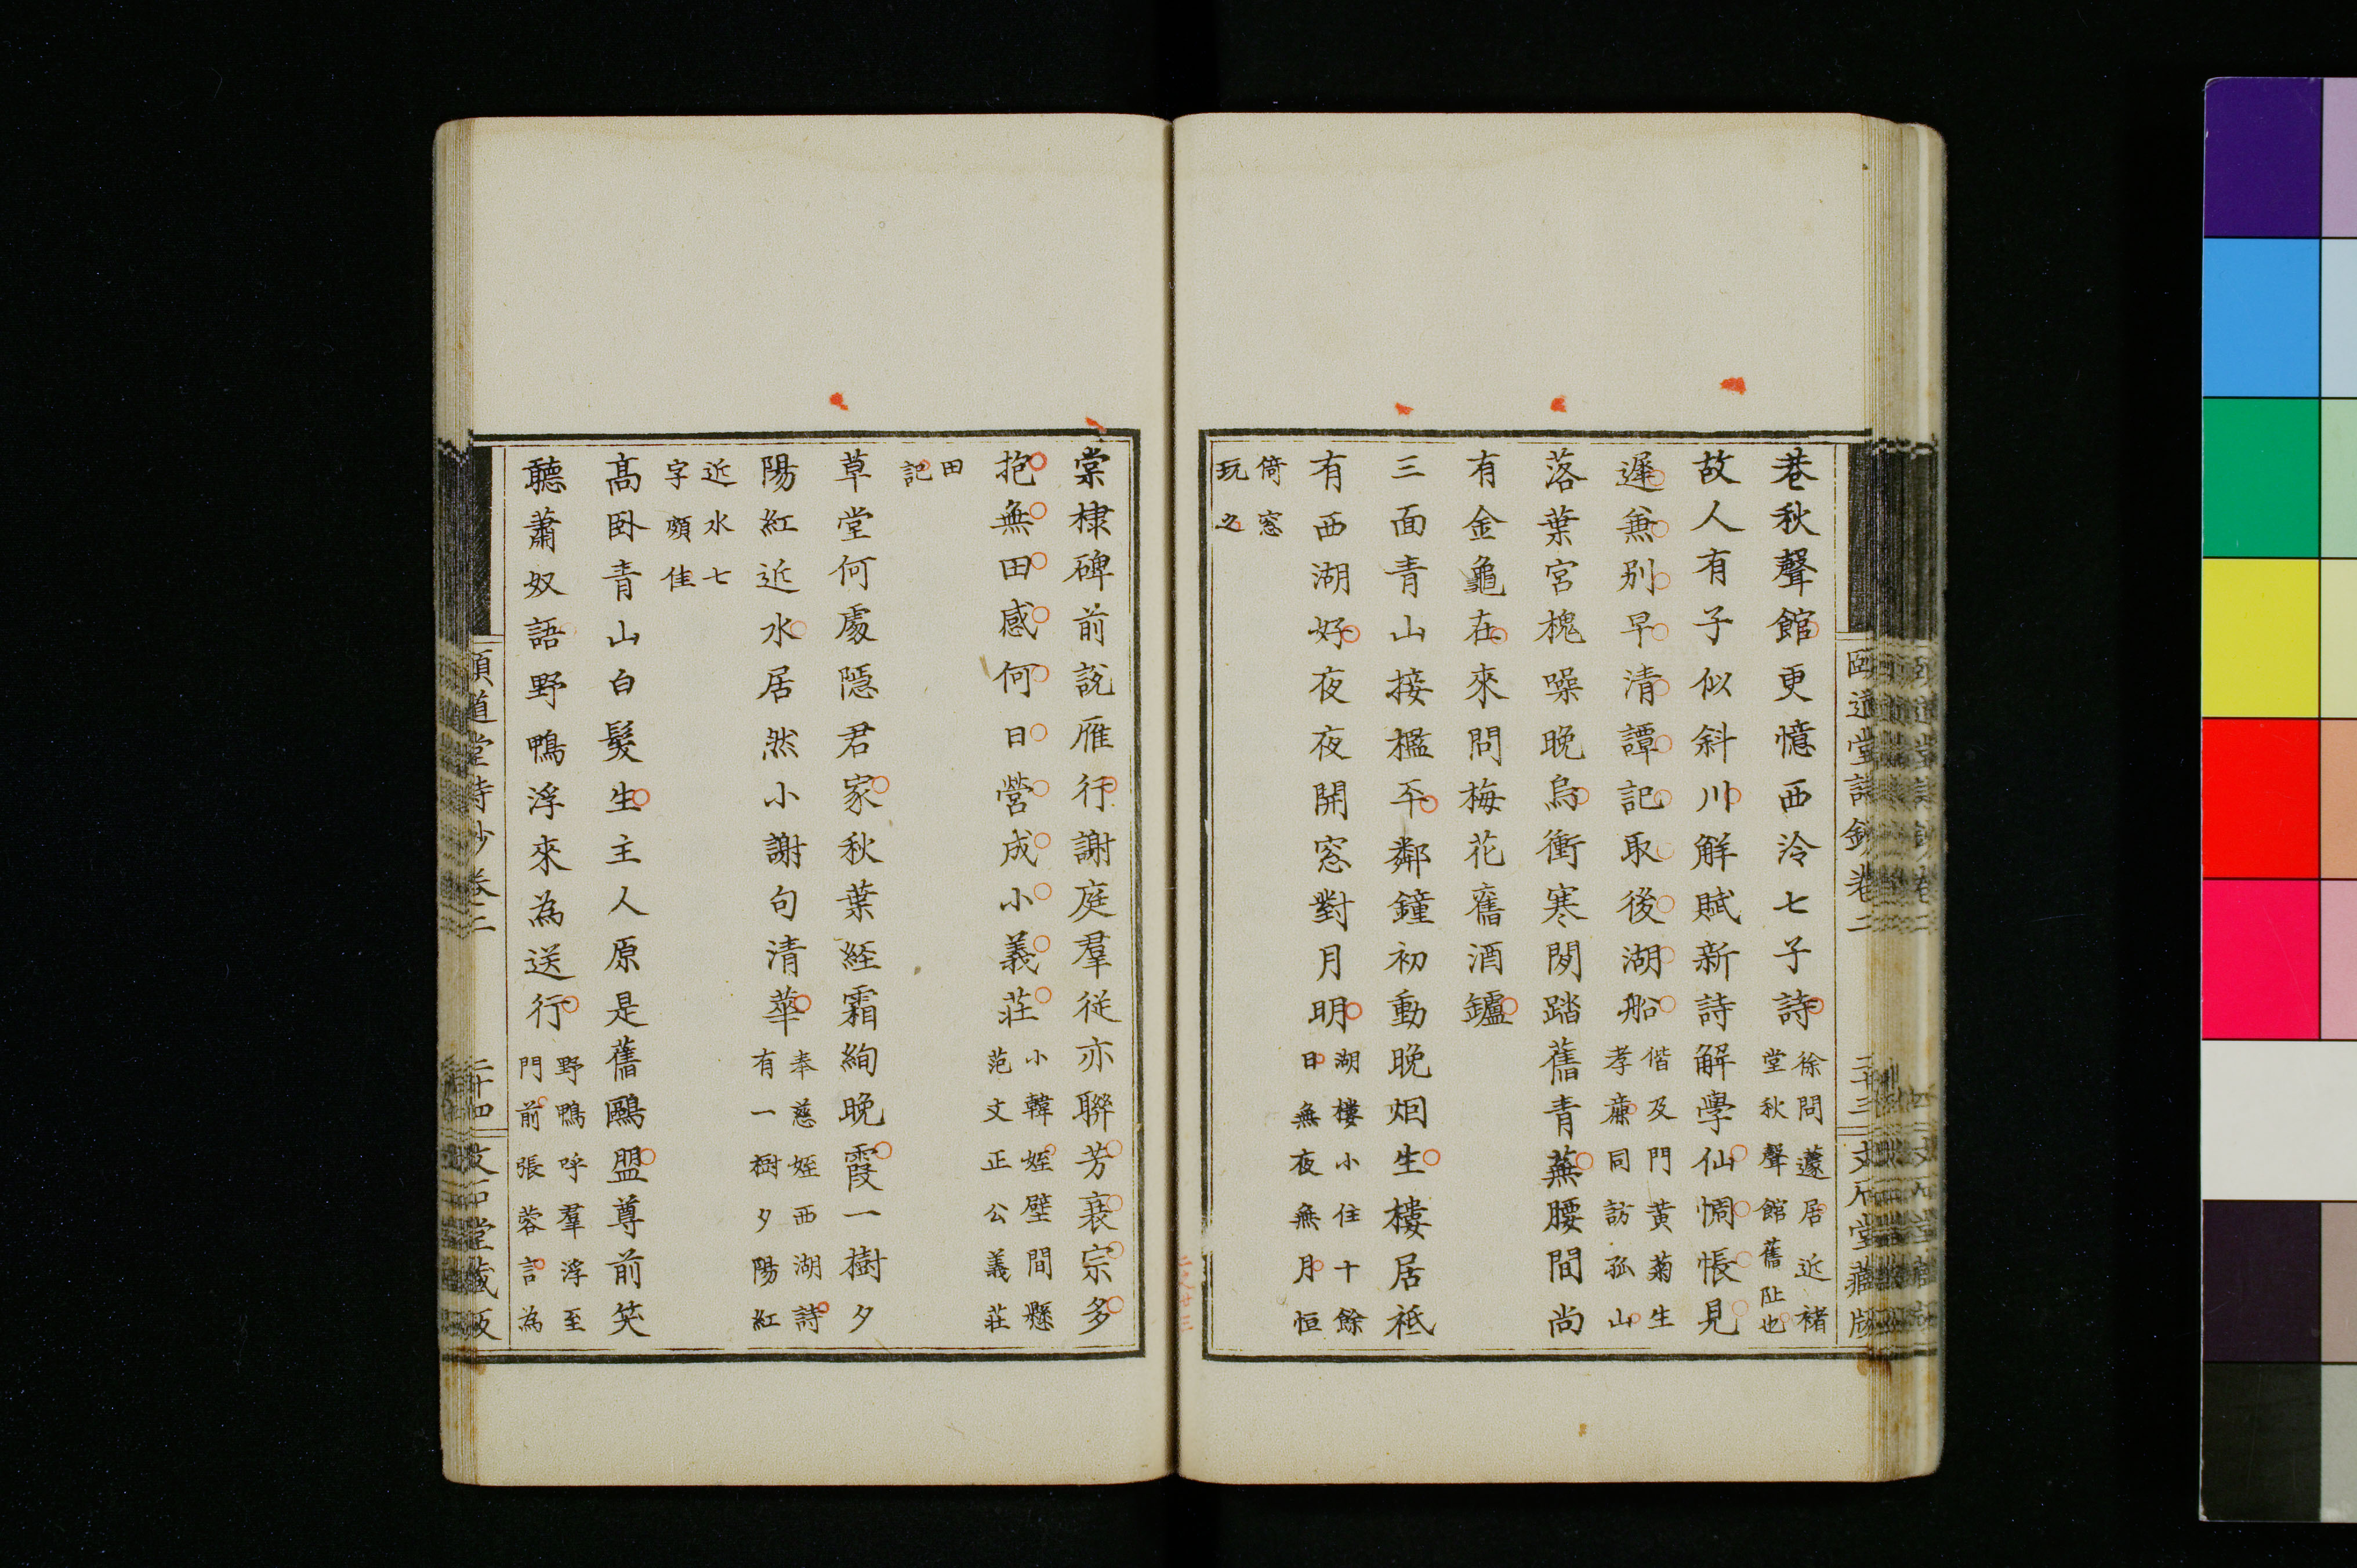 巷秋聲館更憶西泠七子詩徐問蘧居近褚堂秋聲館舊阯也
故人有子似斜川解賦新詩解學仙惆悵見
遲無別早清譚記取後湖船偕及門黃菊生孝廉同訪孤山
落葉宮槐噪晚烏衝寒閒踏舊青蕪腰間尚
有金龜在來問梅花舊酒鑪
三面青山接檻平鄰鐘初動晚烟生樓居祗
有西湖好夜夜開窓對月明湖樓小住十餘日無夜無月恒
倚窓玩之
二十三
棠棣碑前說雁行謝庭羣從亦聯芳衰宗多
抱無田感何日營成小義莊小韓姪壁間懸范文正公義莊
田記
草堂何處隱君家秋葉經霜絢晚霞一樹夕
陽紅近水居然小謝句清華奉慈姪西湖詩有一樹夕陽紅
近水七字頗佳
高臥青山白髮生主人原是舊鷗盟尊前笑
聽蕭奴語野鴨浮來為送行野鴨呼羣浮至門前張蓉言為
頤道堂詩鈔卷二
二十四